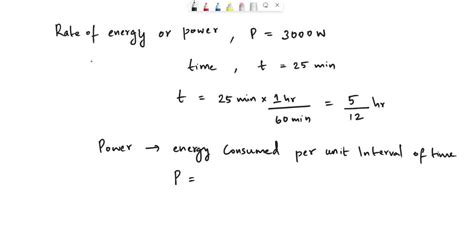 Rate of energy or power, P = 3000W
time, t = 25 min
t = 25 min × 1 hr / 60 min = 5/12 hr
Power → energy Consumed per unit Interval of time
P =